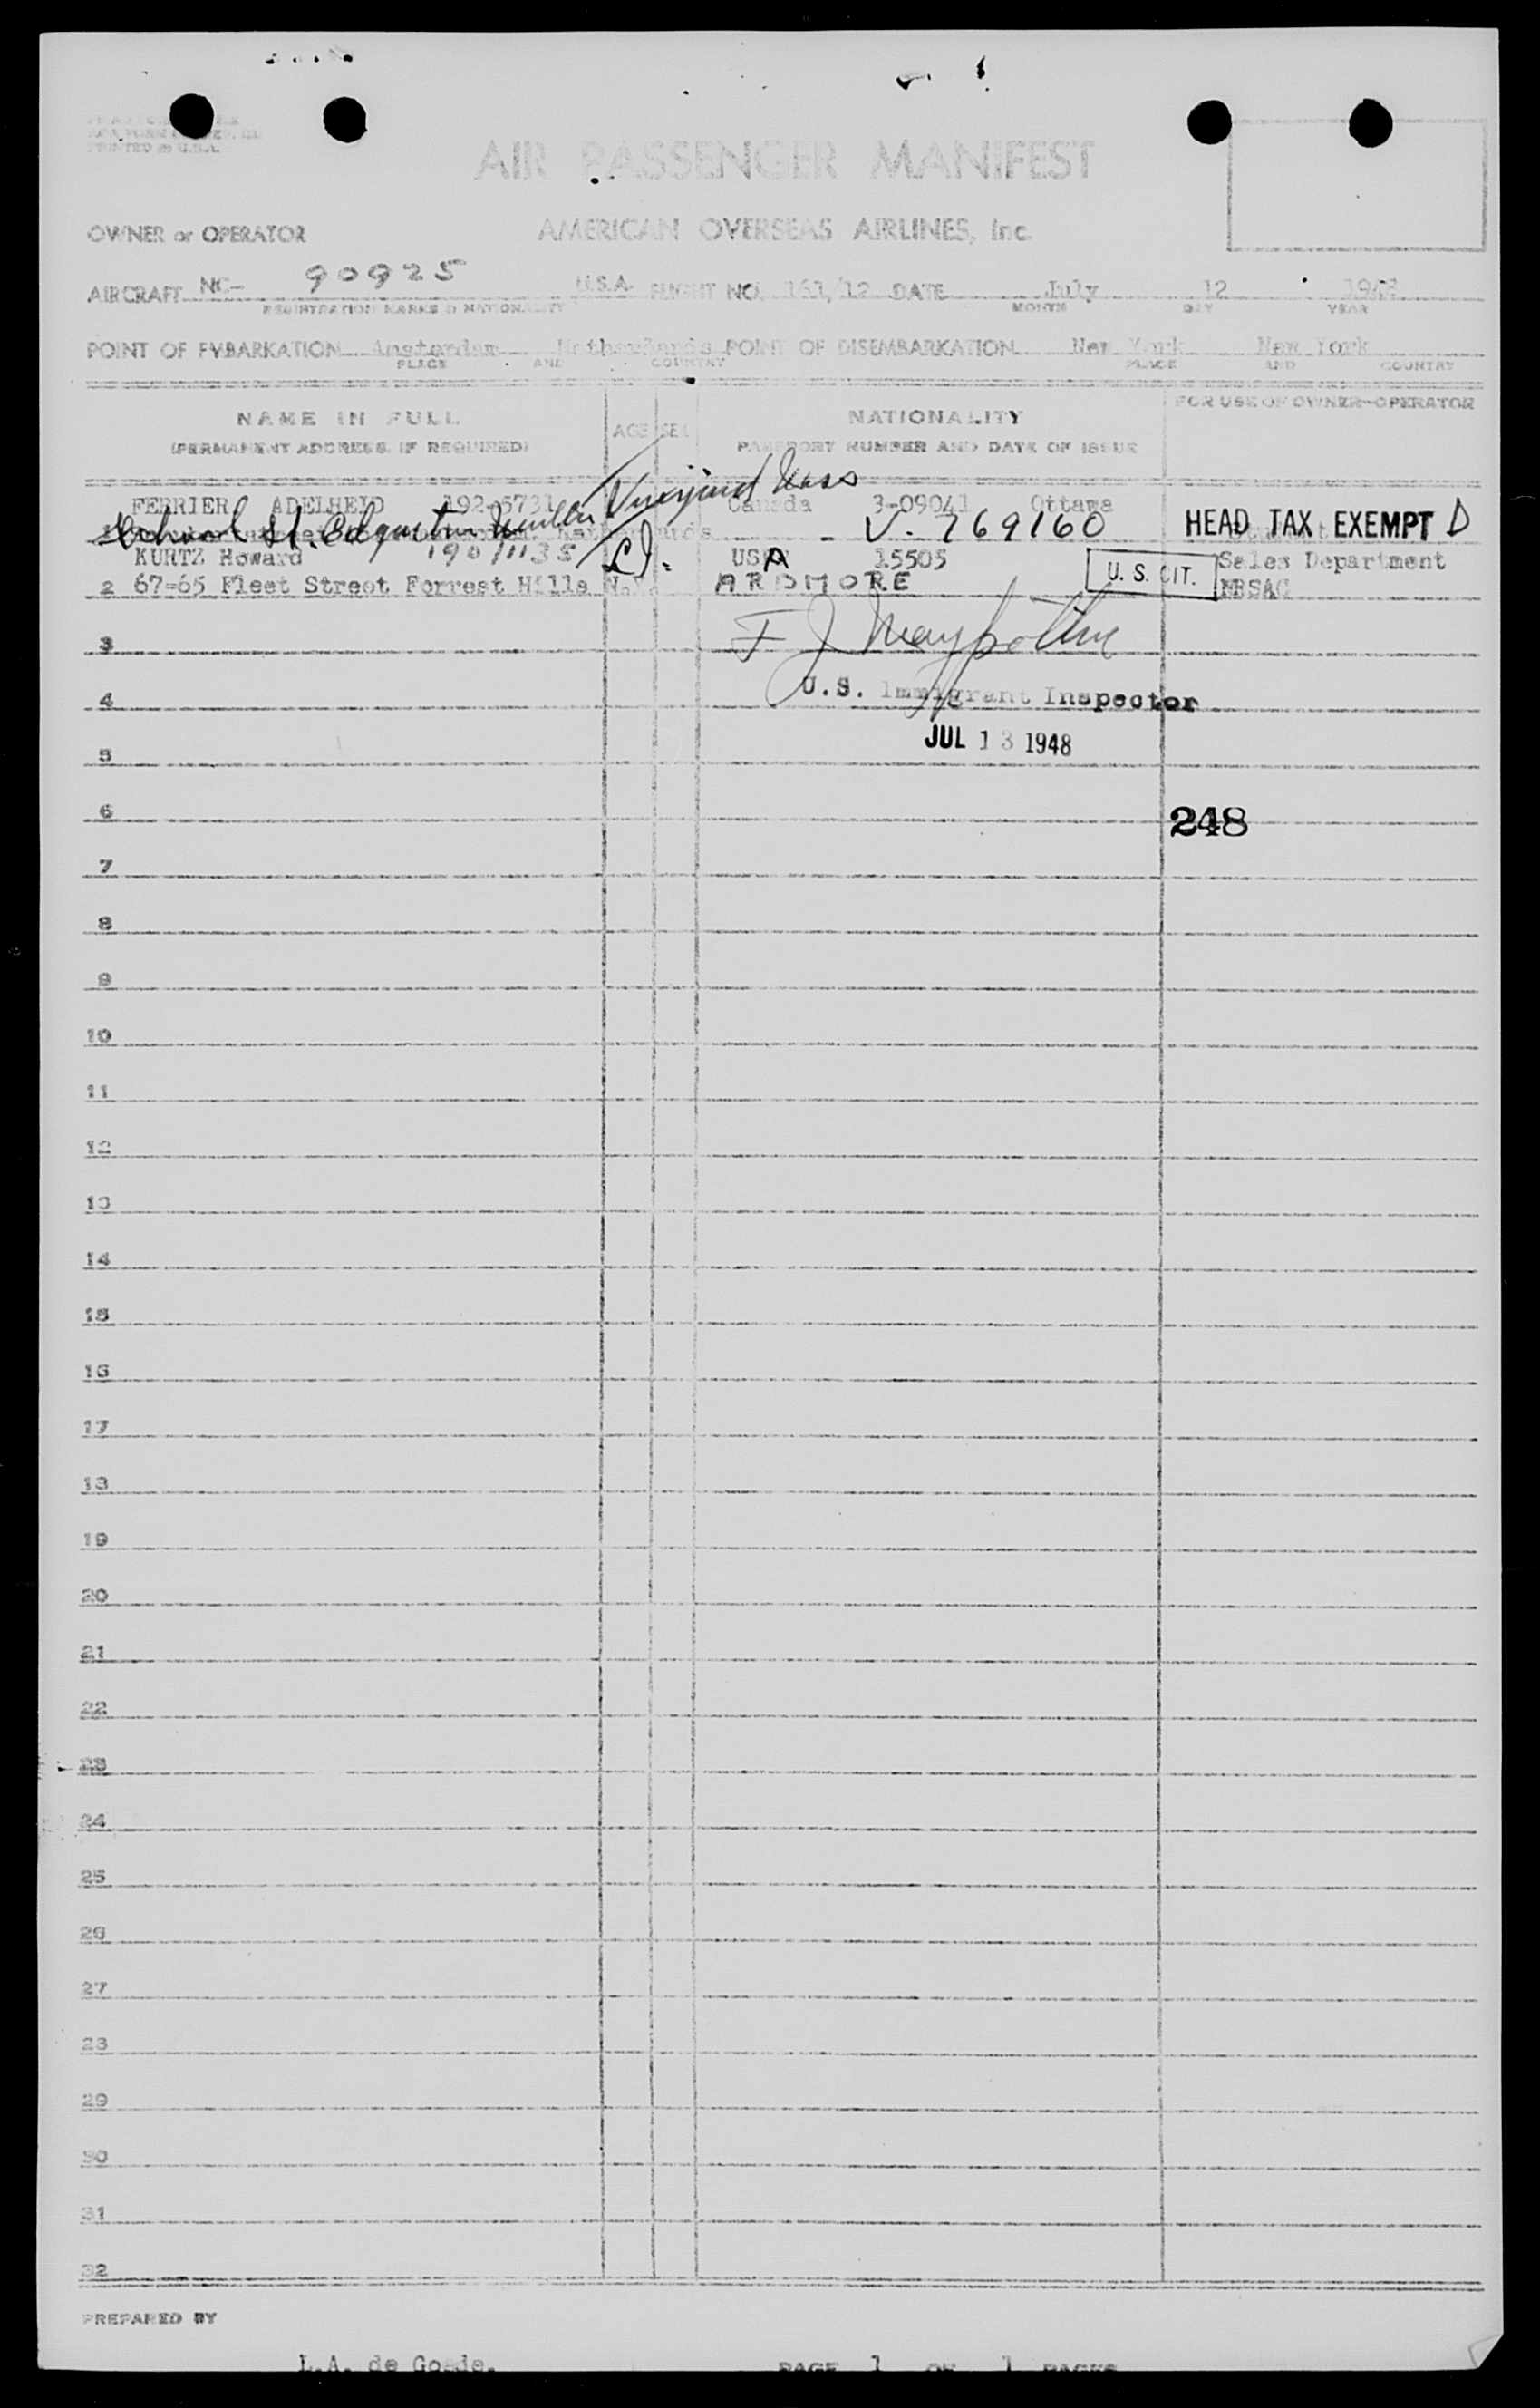 PRINTED IN U.S.A.
AIR PASSENGER MANIFEST
OWNER or OPERATOR AMERICAN OVERSEAS AIRLINES, Inc.
AIRCRAFT NC- 90925 U.S.A. FLIGHT NO. 161/12 DATE July 12 1948
REGISTRATION MARKS & NATIONALITY MONTH DAY YEAR
POINT OF EMBARKATION Amsterdam Netherlands POINT OF DISEMBARKATION New York New York
PLACE AND COUNTRY PLACE AND COUNTRY
NAME IN FULL AGE SEX NATIONALITY FOR USE OF OWNER-OPERATOR
(PERMANENT ADDRESS IF REQUIRED) PASSPORT NUMBER AND DATE OF ISSUE
FERRIER ADELHEID 192-6731 Canada 3-09041 Ottawa
School St. Vineyard Mass V- 769160 HEAD TAX EXEMPT D
KURTZ Howard 190/1135 USA 15505 U. S. CIT. Sales Department
2 67-65 Fleet Street Forrest Hills N.Y. ARDMORE
3 F J
4 U.S. Immigrant Inspector
JUL 13 1948
5
6 248
7
8
9
10
11
12
13
14
15
16
17
18
19
20
21
22
23
24
25
26
27
28
29
30
31
32
PREPARED BY
L.A. de Goede. PAGE 1 OF 1 PAGES